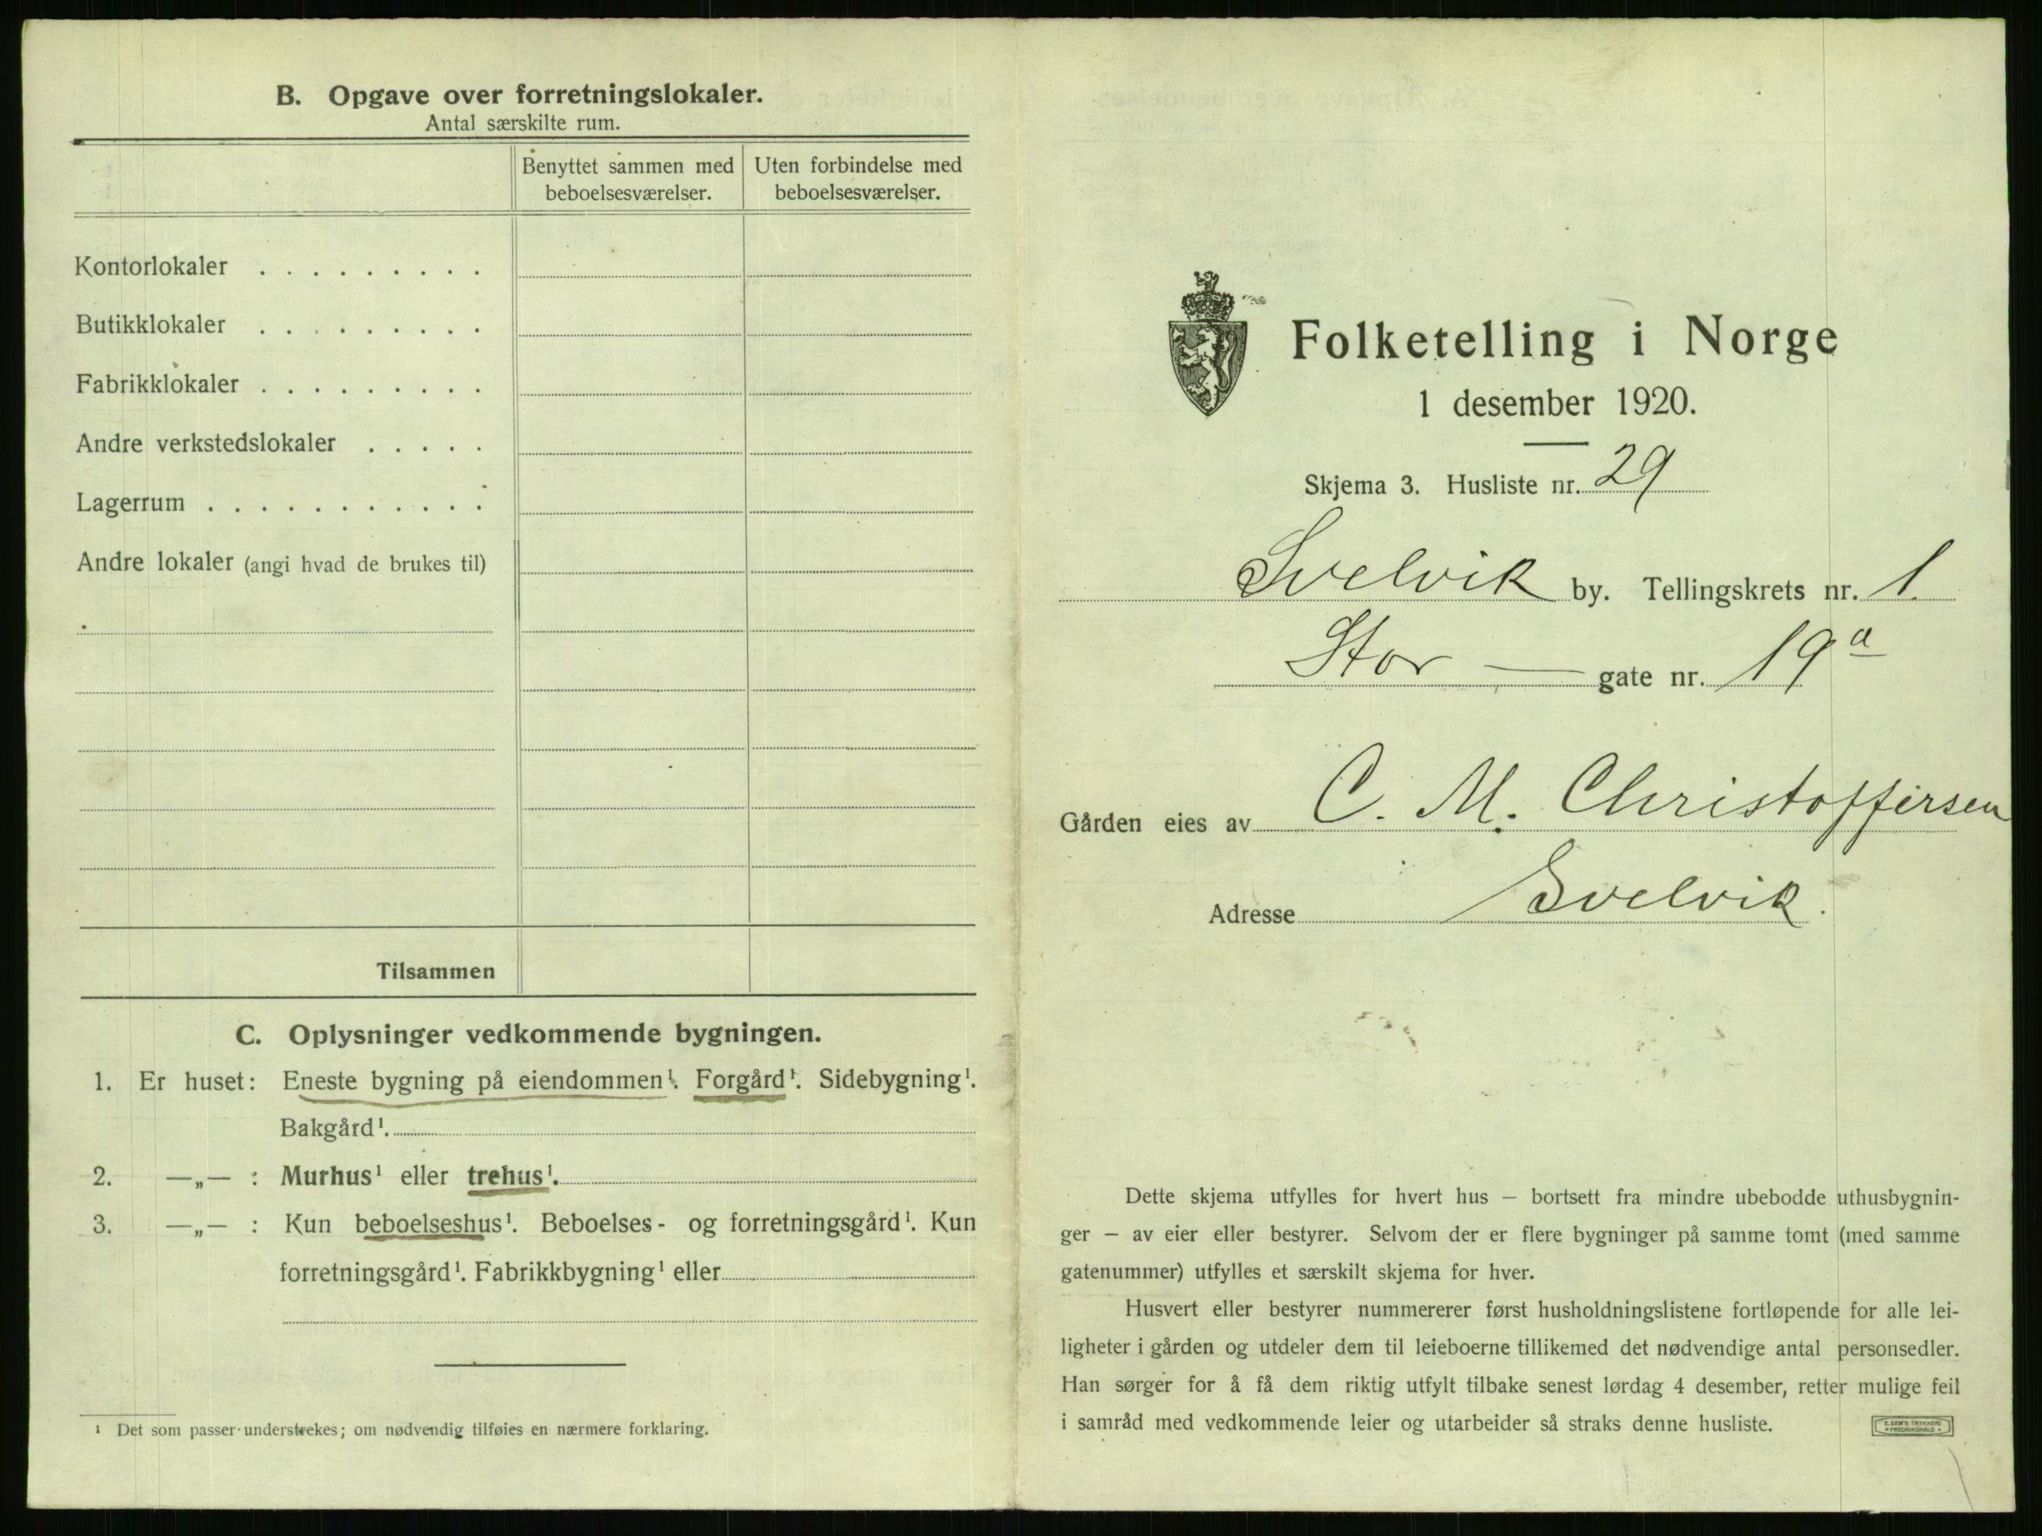 B. Opgave over forretningslokaler.
Antal særskilte rum.
Benyttet sammen med beboelsesværelser.
Uten forbindelse med beboelsesværelser.
Kontorlokaler . . . . . . . . .
Butikklokaler . . . . . . . . .
Fabrikklokaler . . . . . . . . .
Andre verkstedslokaler . . . . .
Lagerrum . . . . . . . . . . .
Andre lokaler (angi hvad de brukes til)
Tilsammen
C. Oplysninger vedkommende bygningen.
1. Er huset: Eneste bygning på eiendommen¹. Forgård¹. Sidebygning¹.
Bakgård¹.
2. —„— : Murhus¹ eller trehus¹.
3. —„— : Kun beboelseshus¹. Beboelses- og forretningsgård¹. Kun
forretningsgård¹. Fabrikkbygning¹ eller
¹ Det som passer understrekes; om nødvendig tilføies en nærmere forklaring.
Folketelling i Norge
1 desember 1920.
Skjema 3. Husliste nr. 29
Svelvik by. Tellingskrets nr. 1.
Stor — gate nr. 19a
Gården eies av C. M. Christoffersen
Adresse Svelvik.
Dette skjema utfylles for hvert hus – bortsett fra mindre ubebodde uthusbygnin-
ger – av eier eller bestyrer. Selvom der er flere bygninger på samme tomt (med samme
gatenummer) utfylles et særskilt skjema for hver.
Husvert eller bestyrer nummererer først husholdningslistene fortløpende for alle lei-
ligheter i gården og utdeler dem til leieboerne tillikemed det nødvendige antal personsedler.
Han sørger for å få dem riktig utfylt tilbake senest lørdag 4 desember, retter mulige feil
i samråd med vedkommende leier og utarbeider så straks denne husliste.
E. SEM'S TRYKKERI
FREDRIKSHALD